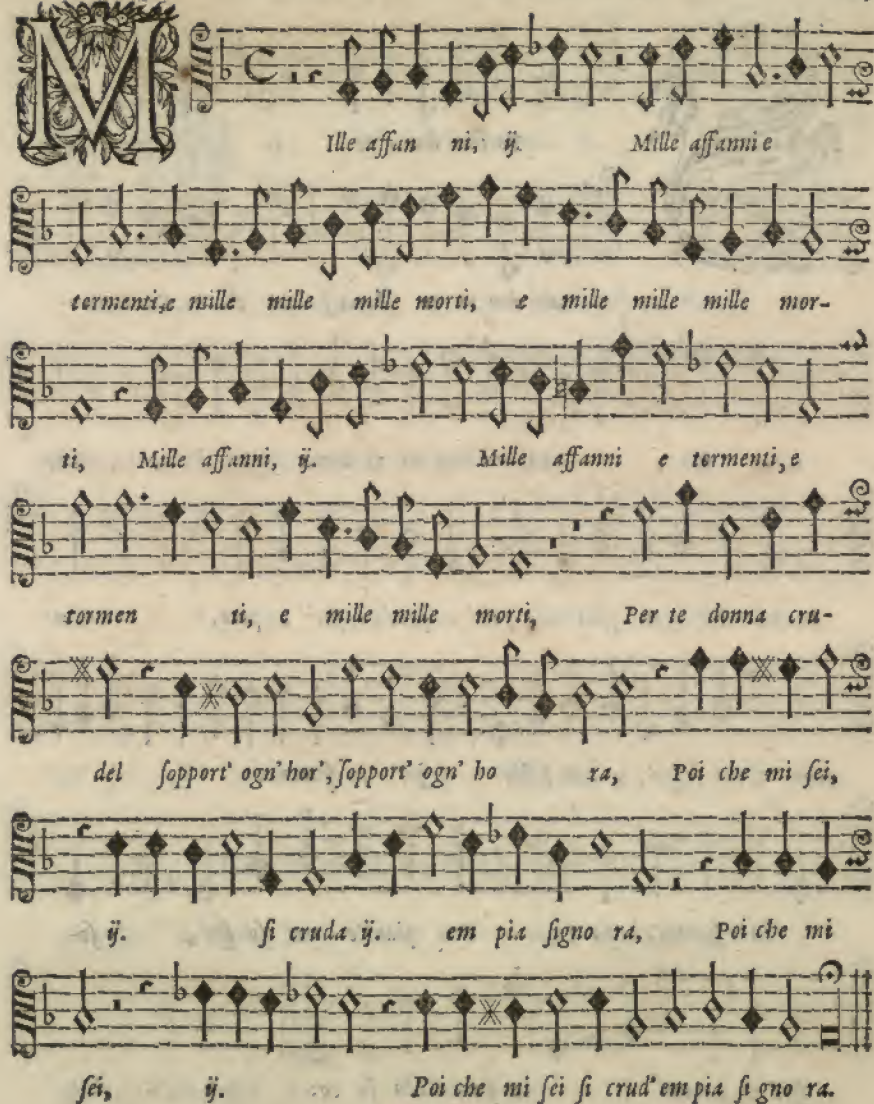 MIlle affan ni, ij. Mille affanni e
tormenti, e mille mille mille morti, e mille mille mille mor-
ti, Mille affanni, ij. Mille affanni e tormenti, e
tormen ti, e mille mille morti, Per te donna cru-
del ſopport' ogn'hor', ſopport' ogn' ho ra, Poi che mi ſei,
ij. ſi cruda ij. em pia ſigno ra, Poi che mi
ſei, ij. Poi che mi ſei ſi crud' em pia ſi gno ra.